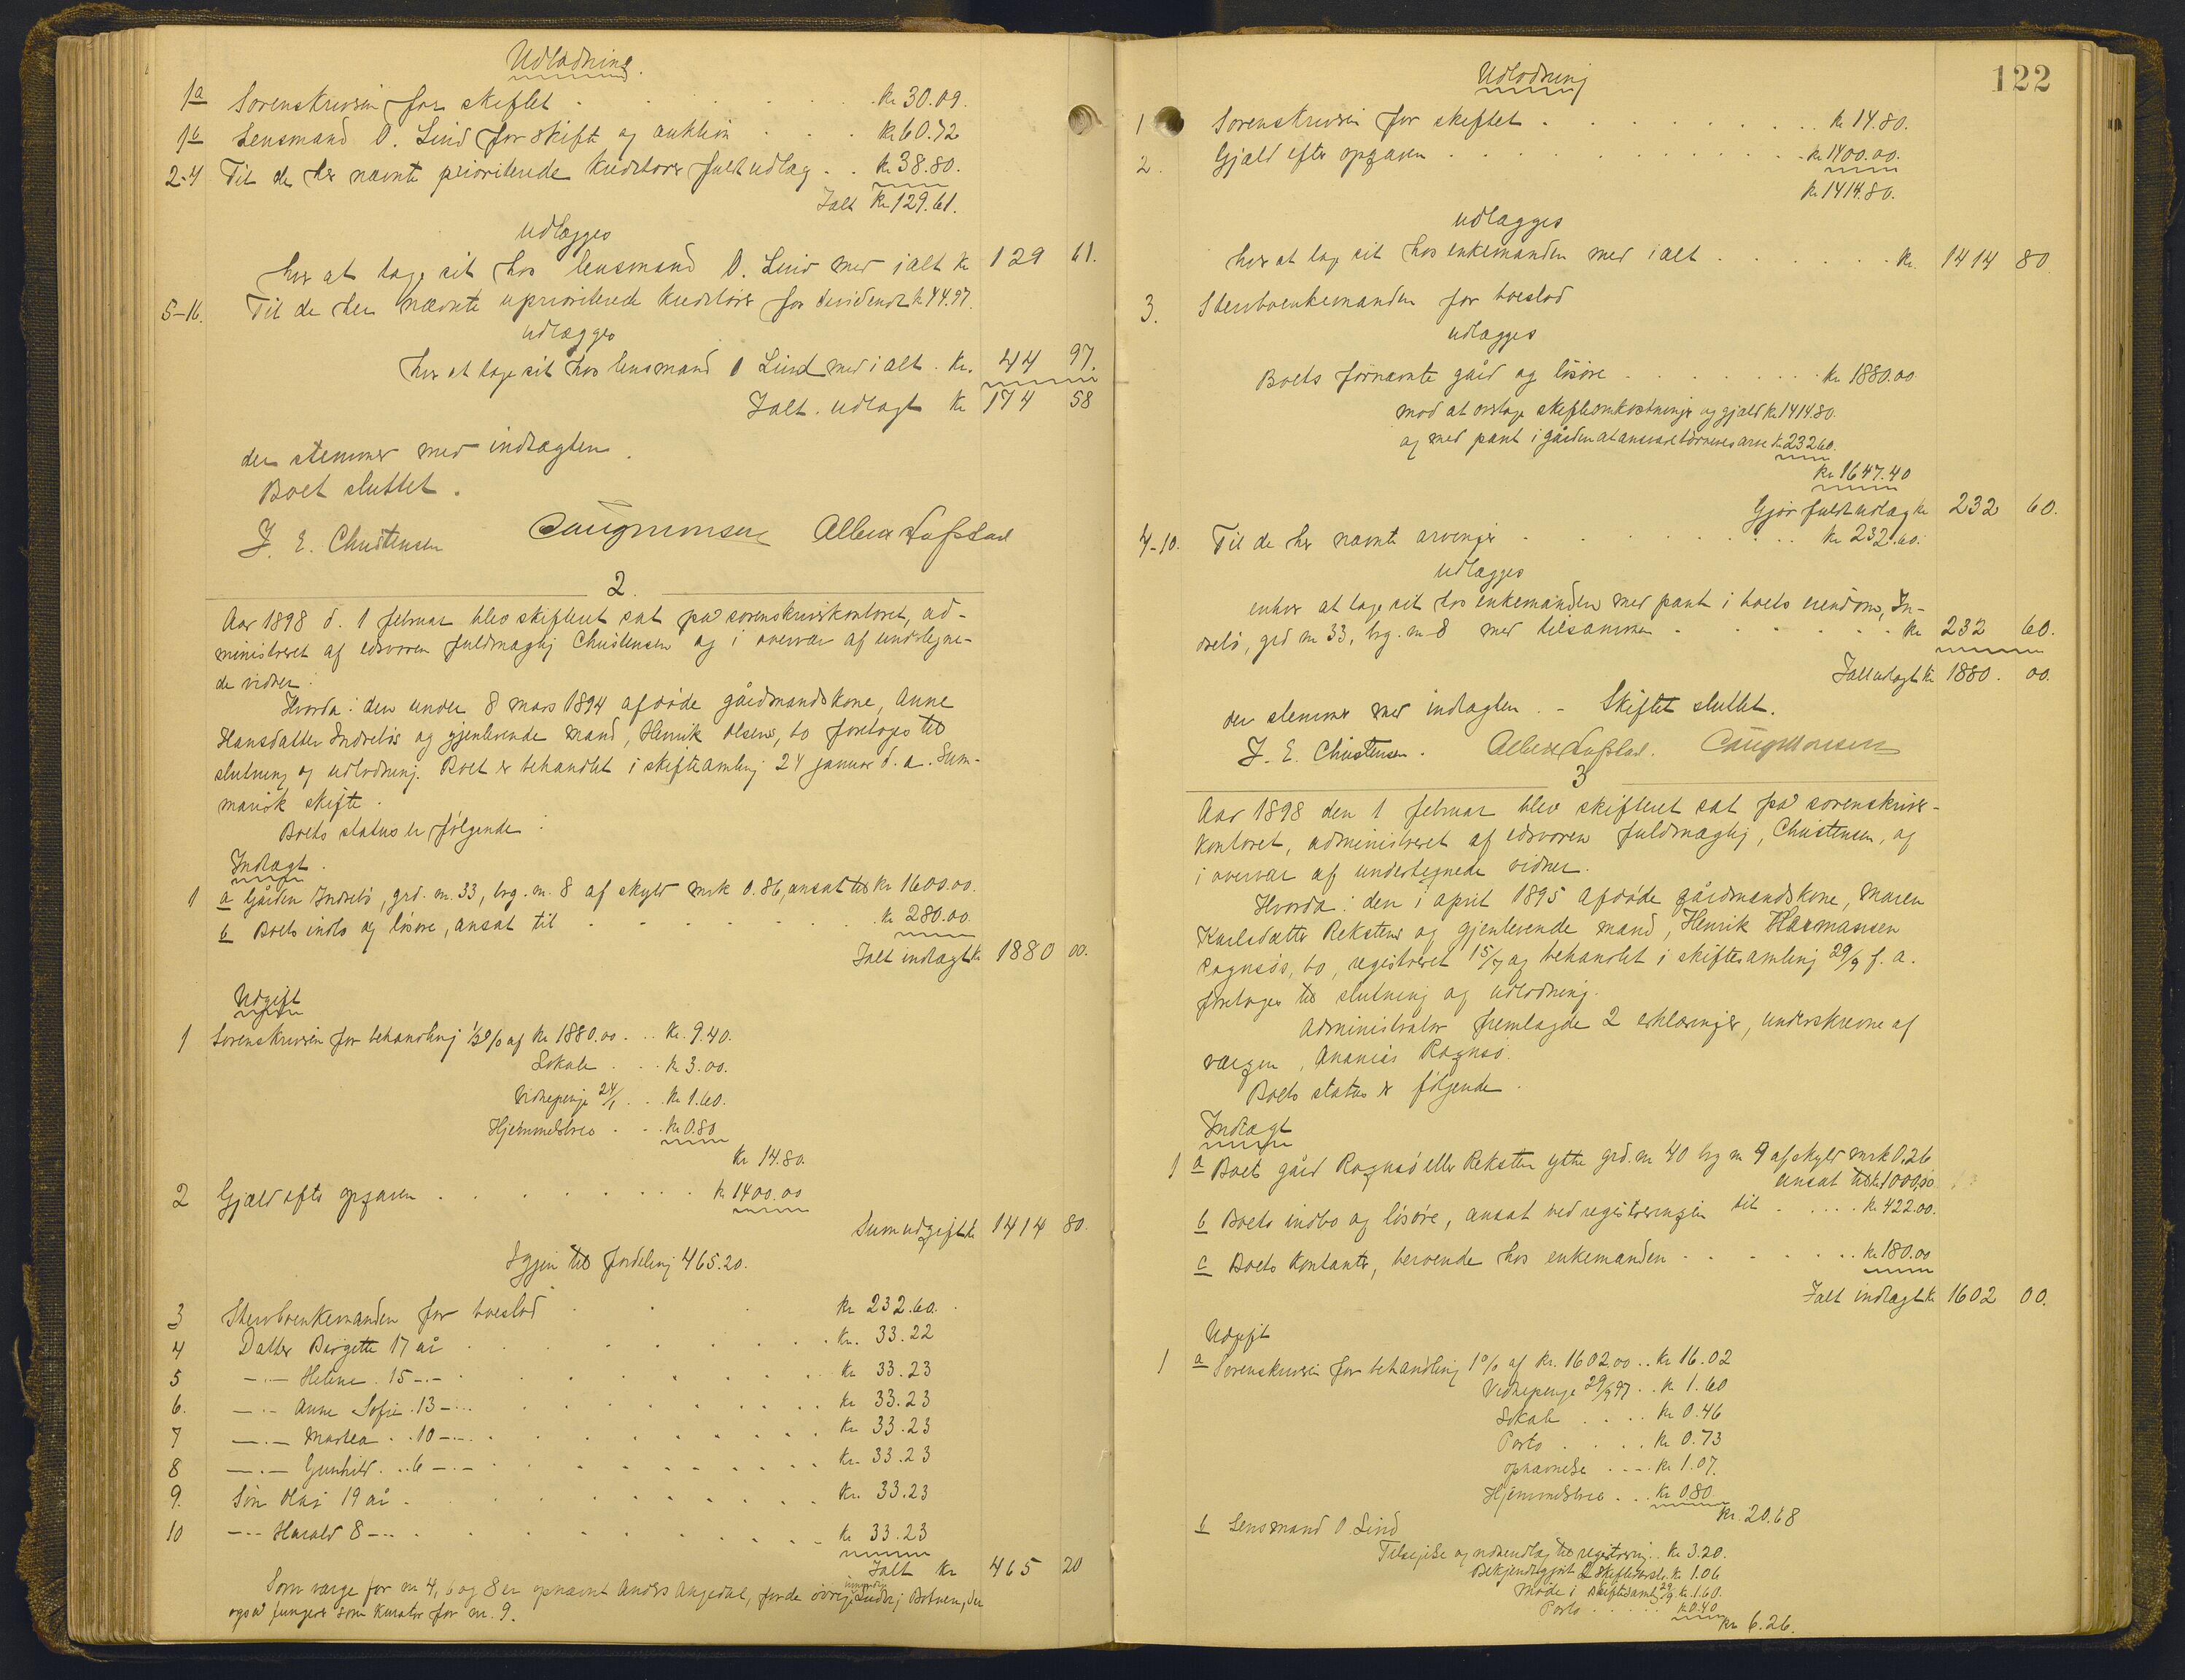 Udlodning.
1a Sorenskriveren for skiftet . . . . . . . kr 30.09.
1b Lensmand O. Lind for skift og auktion . . . kr 60.72
2-4 Til de her nævnte prioriterede kreditorer fuldt udlæg . . kr 38.80.
Ialt kr 129.61.
udlægges
hver at tage sit hos lensmand O. Lind med ialt kr 129 61.
5-16. Til de her nævnte uprioriterede kreditorer for dividende kr 44.97.
udlægges
hver at tage sit hos lensmand O Lind med ialt . kr. 44 97.
Ialt udlagt kr 174 58
der stemmer med indtægten.
Boet sluttet.
J. E. Christensen
2.
Aar 1898 d. 1 februar blev skifteret sat på sorenskriverkontoret, ad-
ministreret af edsvoren fuldmægtig Christensen og i overvær af undertegne-
de vidner.
Hvorda: den under 8 mars 1894 afdøde gårdmandskone, Anne
Hansdatter Indrebøs og gjenlevende mand, Henrik Olsens, bo foretoges til
slutning og udlodning. Boet er behandlet i skiftesamling 24 januar d. a. Sum-
marisk skifte.
Boets status er følgende:
Indtægt.
1 a Gården Indrebø, grd. nr. 33, brg. nr. 8 af skyld mrk 0.86, ansat til kr 1600.00.
b Boets indbo og løsøre, ansat til . . . . . . kr 280.00
Ialt indtægt kr 1880 00.
Udgift
1 Sorenskriveren for behandling ½% af kr 1880.00 . . . kr. 9.40.
Lokale . . . kr 3.00.
Vidnepenge 24/1 . . kr 1.60.
Hjemmelsbrev . . . kr 0.80
kr 14.80.
2 Gjæld efter opgaven . . . . . . . . kr 1400.00
Sum udgift kr 1414 80.
Igjen til fordeling 465.20.
3 Stervboenkemanden for boeslod . . . kr 232.60.
4 Datter Birgitte 17 år . . . . . . . kr. 33.22
5 -.- Heline . 15 -.- . . . . . . . kr 33.23
6. -.- Anne Sofie . 13 -.- . . . . . . . kr 33.23
7 -.- Martea . . 10 -.- . . . . . . . kr 33.23
8 -.- Gunhild . . 6 -.- . . . . . . . kr. 33.23
9. Søn Olaj 19 år . . . . . . . kr. 33.23
10 -.- Harald 8 -.- . . . . . . . kr 33.23
Ialt kr 465 20
Som værge for nr 4, 6 og 8 er opnævnt Anders Angedal, for de øvrige umyndige Botnen, der
også fungerer som kurator for nr. 9.
122
Udlodning
1 Sorenskriveren for skiftet . . . . . . . . . kr 14.80.
2. Gjæld efter opgaven . . . . . . . . . kr 1400.00.
kr 1414.80.
udlægges
hver at tage sit hos enkemanden med ialt . . . . . . kr. 1414 80.
3. Stervboenkemanden for boeslod
udlægges
Boets førnævnte gård og løsøre . . . . . . . kr 1880.00
mod at overtage skifteomkostninger og gjæld kr 1414.80.
og med pant i gården at ansvare børnenes arv kr 232.60.
kr 1647.40
Gjør fuldt udlæg kr 232 60.
4-10. Til de her nævnte arvinger . . . . . . . . kr 232.60.
udlægges
enhver at tage sit hos enkemanden med pant i boets eiendom, In-
drebø, grd nr 33, brg. nr 8 med tilsammen . . . . . . kr 232 60.
Ialt udlagt kr 1880. 00.
der stemmer med indtægten. - Skiftet sluttet.
J. E. Christensen.
3
Aar 1898 den 1 februar blev skifteret sat på sorenskriver-
kontoret, administreret af edsvoren fuldmægtig, Christensen, og
i overvær af undertegnede vidner.
Hvorda: den i april 1895 afdøde gårdmandskone, Maren
Karlsdatter Rekstens og gjenlevende mand, Henrik Hermansen
Rognsøs, bo, registreret 15/7 og behandlet i skiftesamling 29/9 f. a.
foretoges til slutning og udlodning.
Administrator fremlagde 2 erklæringer, underskrevne af
værgen, Ananias Rognsø.
Boets status er følgende.
Indtægt
1 a Boets gård Rognsø eller Reksten ytre grd. nr 40 brg nr 9 af skyld mrk 0.26
ansat til kr 1000.00
b Boets indbo og løsøre, ansat ved registreringen til . . . . . kr 422.00.
c Boets kontanter, beroende hos enkemanden . . . . . . . kr 180.00
Ialt indtægt kr 1602 00.
Udgift
1 a Sorenskriveren for behandling 1% af kr. 1602.00 . . kr 16.02
Vidnepenge 29/9 97 . . kr 1.60
Lokale . . . . kr 0.46
Porto . . . . . kr 0.73
opnævnelse . . . . kr 1.07.
Hjemmelsbrev . . . kr 0.80
kr. 20.68
b Lensmand O. Lind
Tilsigelse og vidneudlæg til registrering . . kr 3.20.
Bekjendtgjørt 2 skifteindk. kr 1.06
Møde i skiftesaml. 29/9 kr 1.60.
Porto . . . . . kr 0.40
kr 6.26.